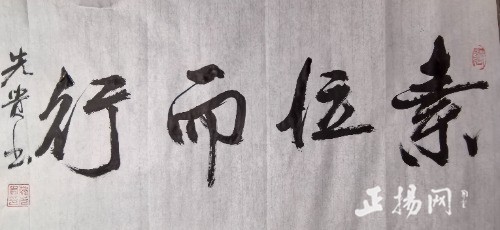 素位而行
先贵书
正扬网